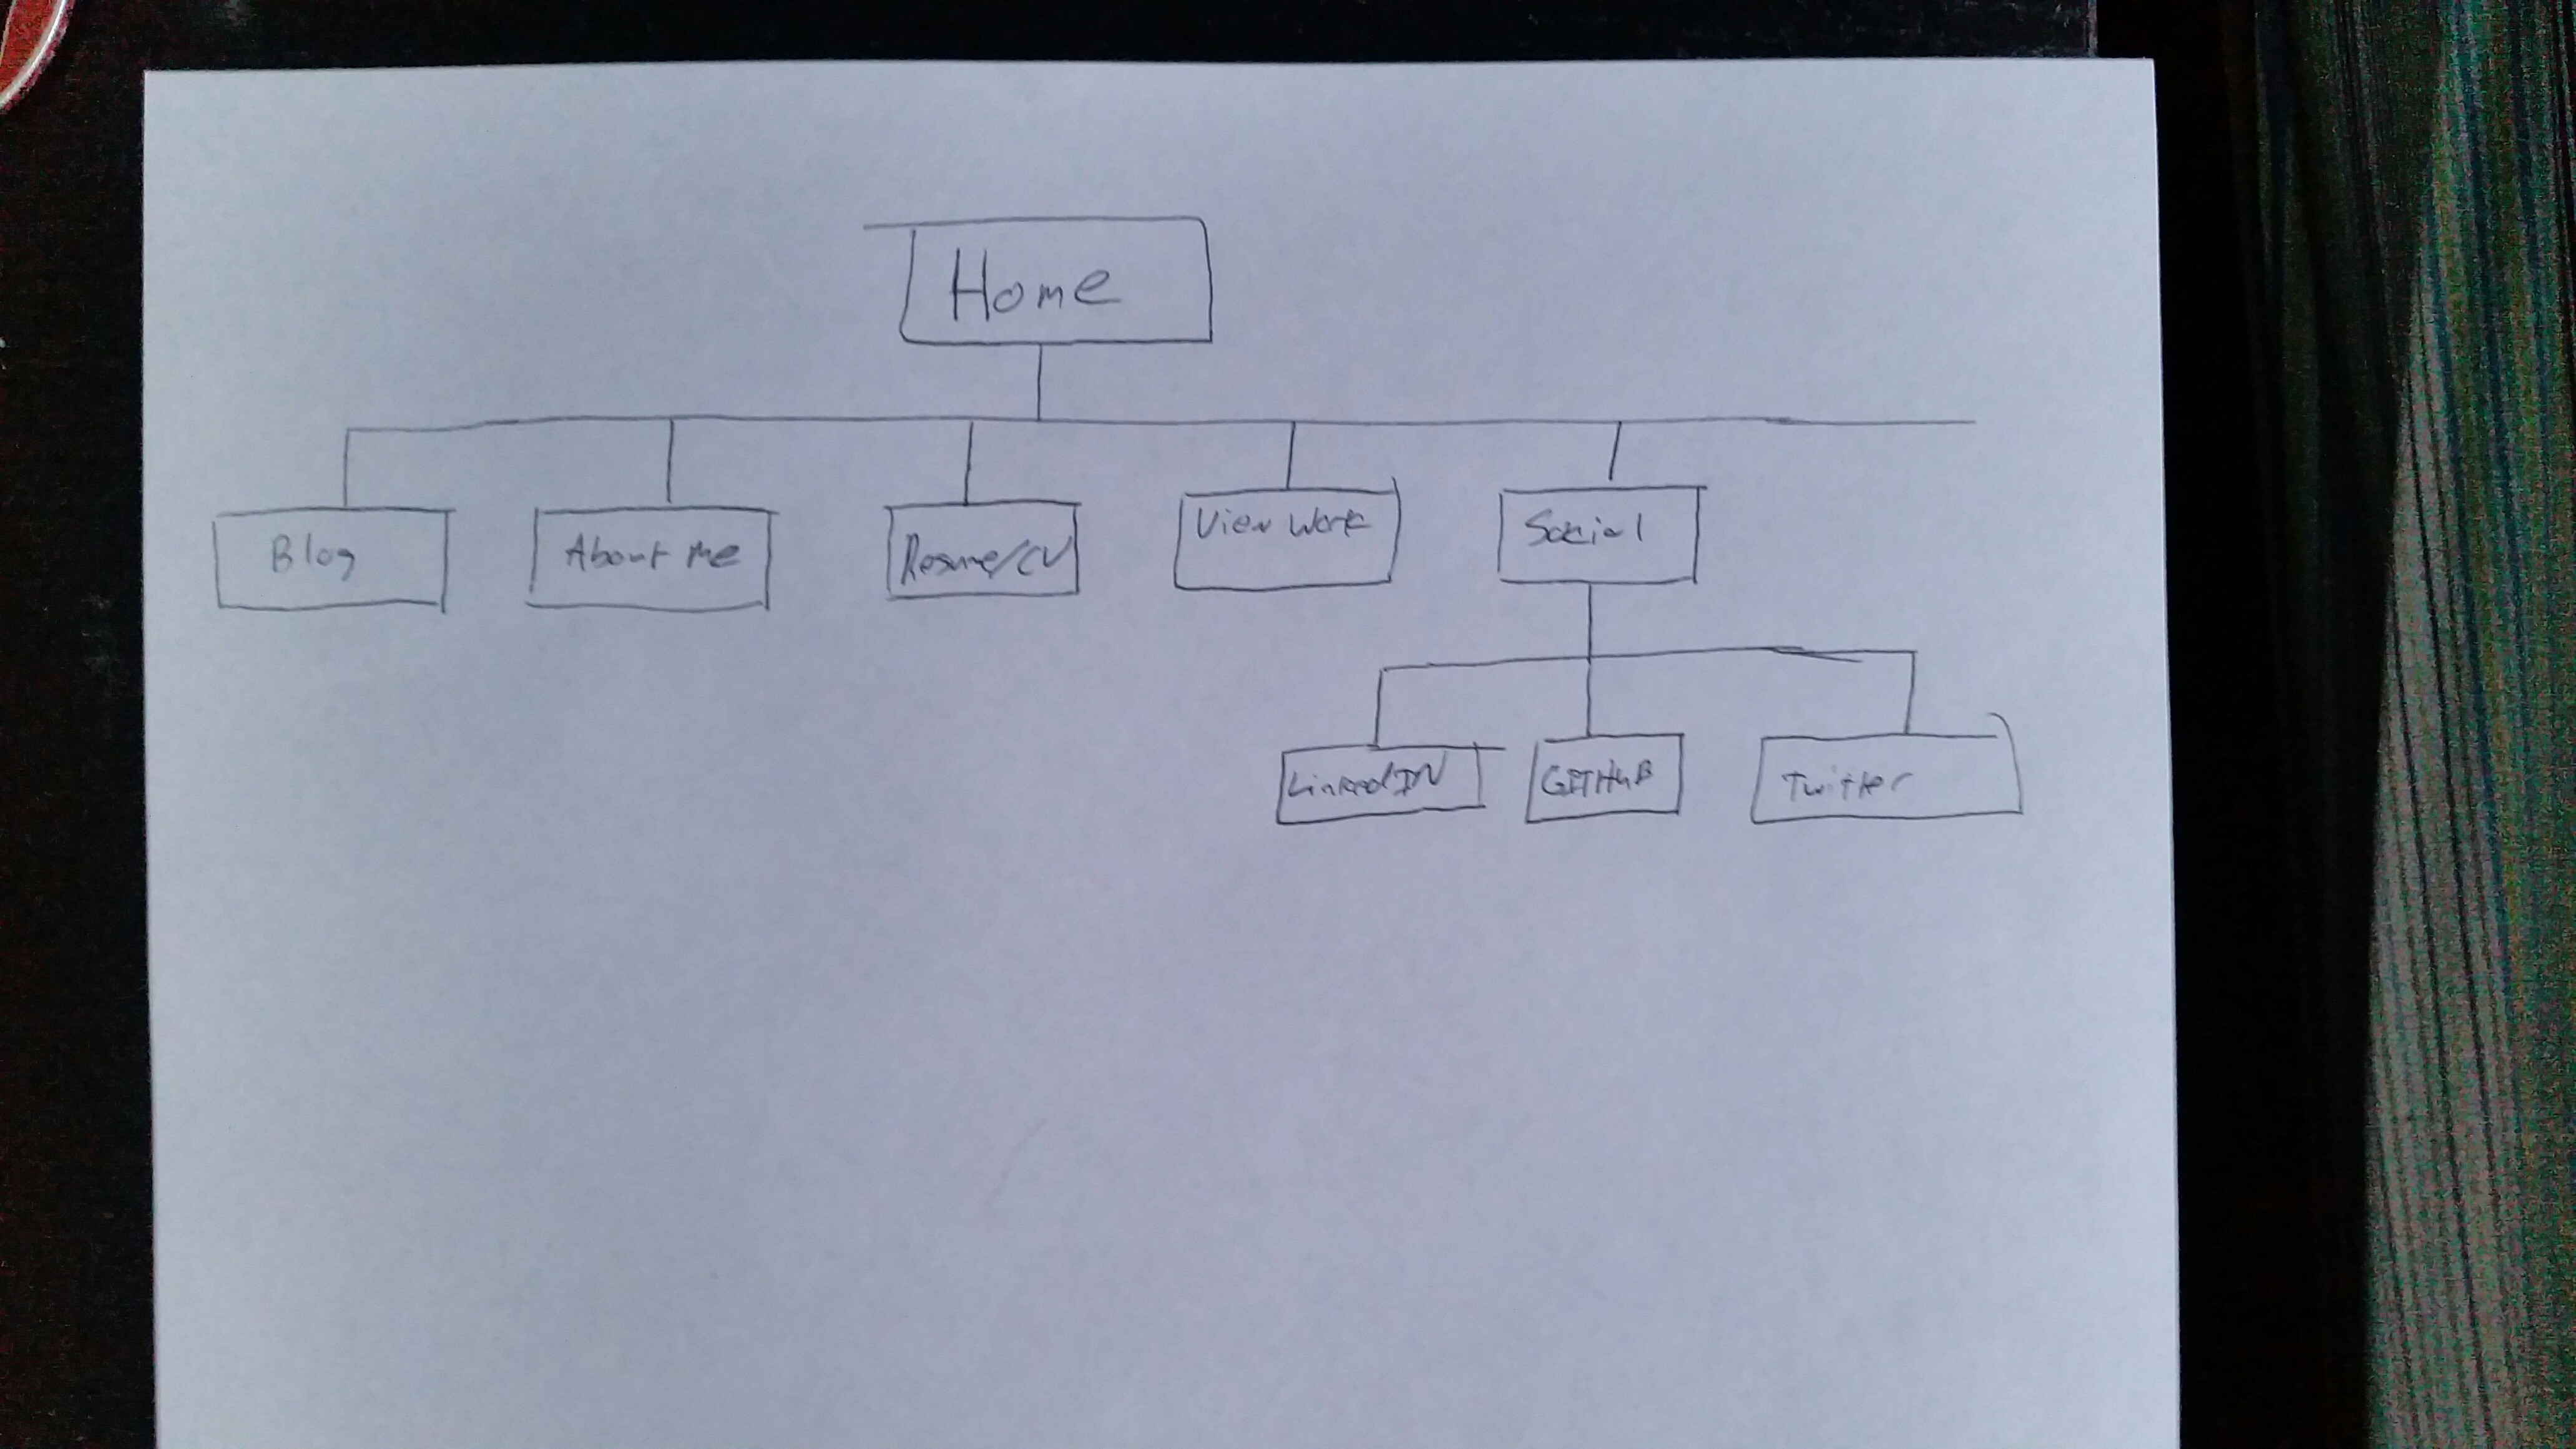 Home
Blog
About Me
Resume/CV
View Work
Social
LinkedIN
GITHuB
Twitter